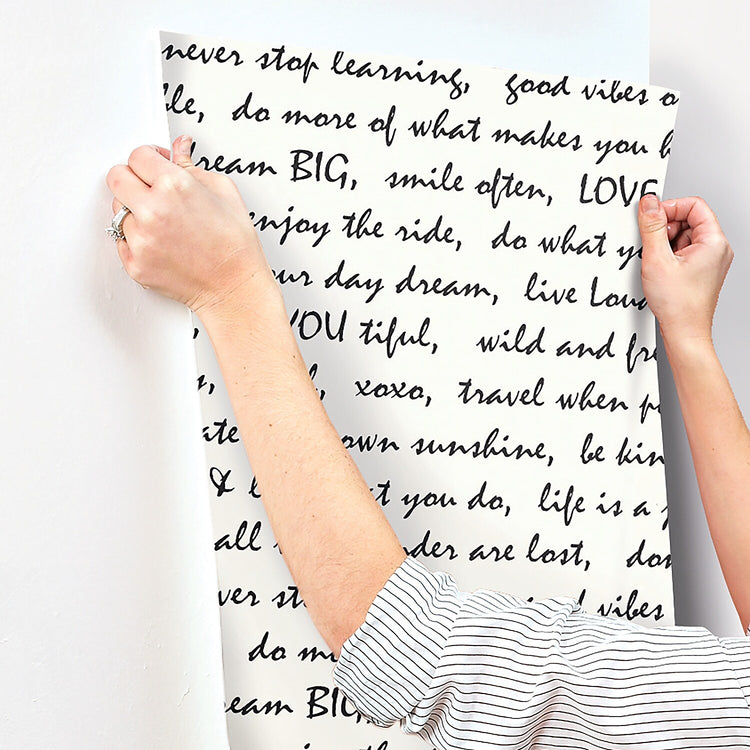 never stop learning, good vibes o
ble, do more of what makes you h
dream BIG, smile often, LOVE
enjoy the ride, do what y
our day dream, live Loud
YOU tiful, wild and fre
s, xoxo, travel when p
ate own sunshine, be kin
& l t you do, life is a
all der are lost, don
ver st vibes
do m
ream BIG,
the